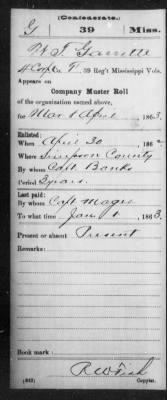 (Confederate.)
G 39 Miss.
W. J. Garrette
4 Corp Co. 39 Reg't Mississippi Vols.
Appears on
Company Muster Roll
of the organization named above,
for Mar & April, 1863.
Enlisted:
When April 30, 186
Where Simpson County
By whom Capt. Banks
Period 3 years
Last paid:
By whom Capt Magee
To what time Jan 1, 1863.
Present or absent Present
Remarks:
Book mark:
R W Fish
(642) Copyist.